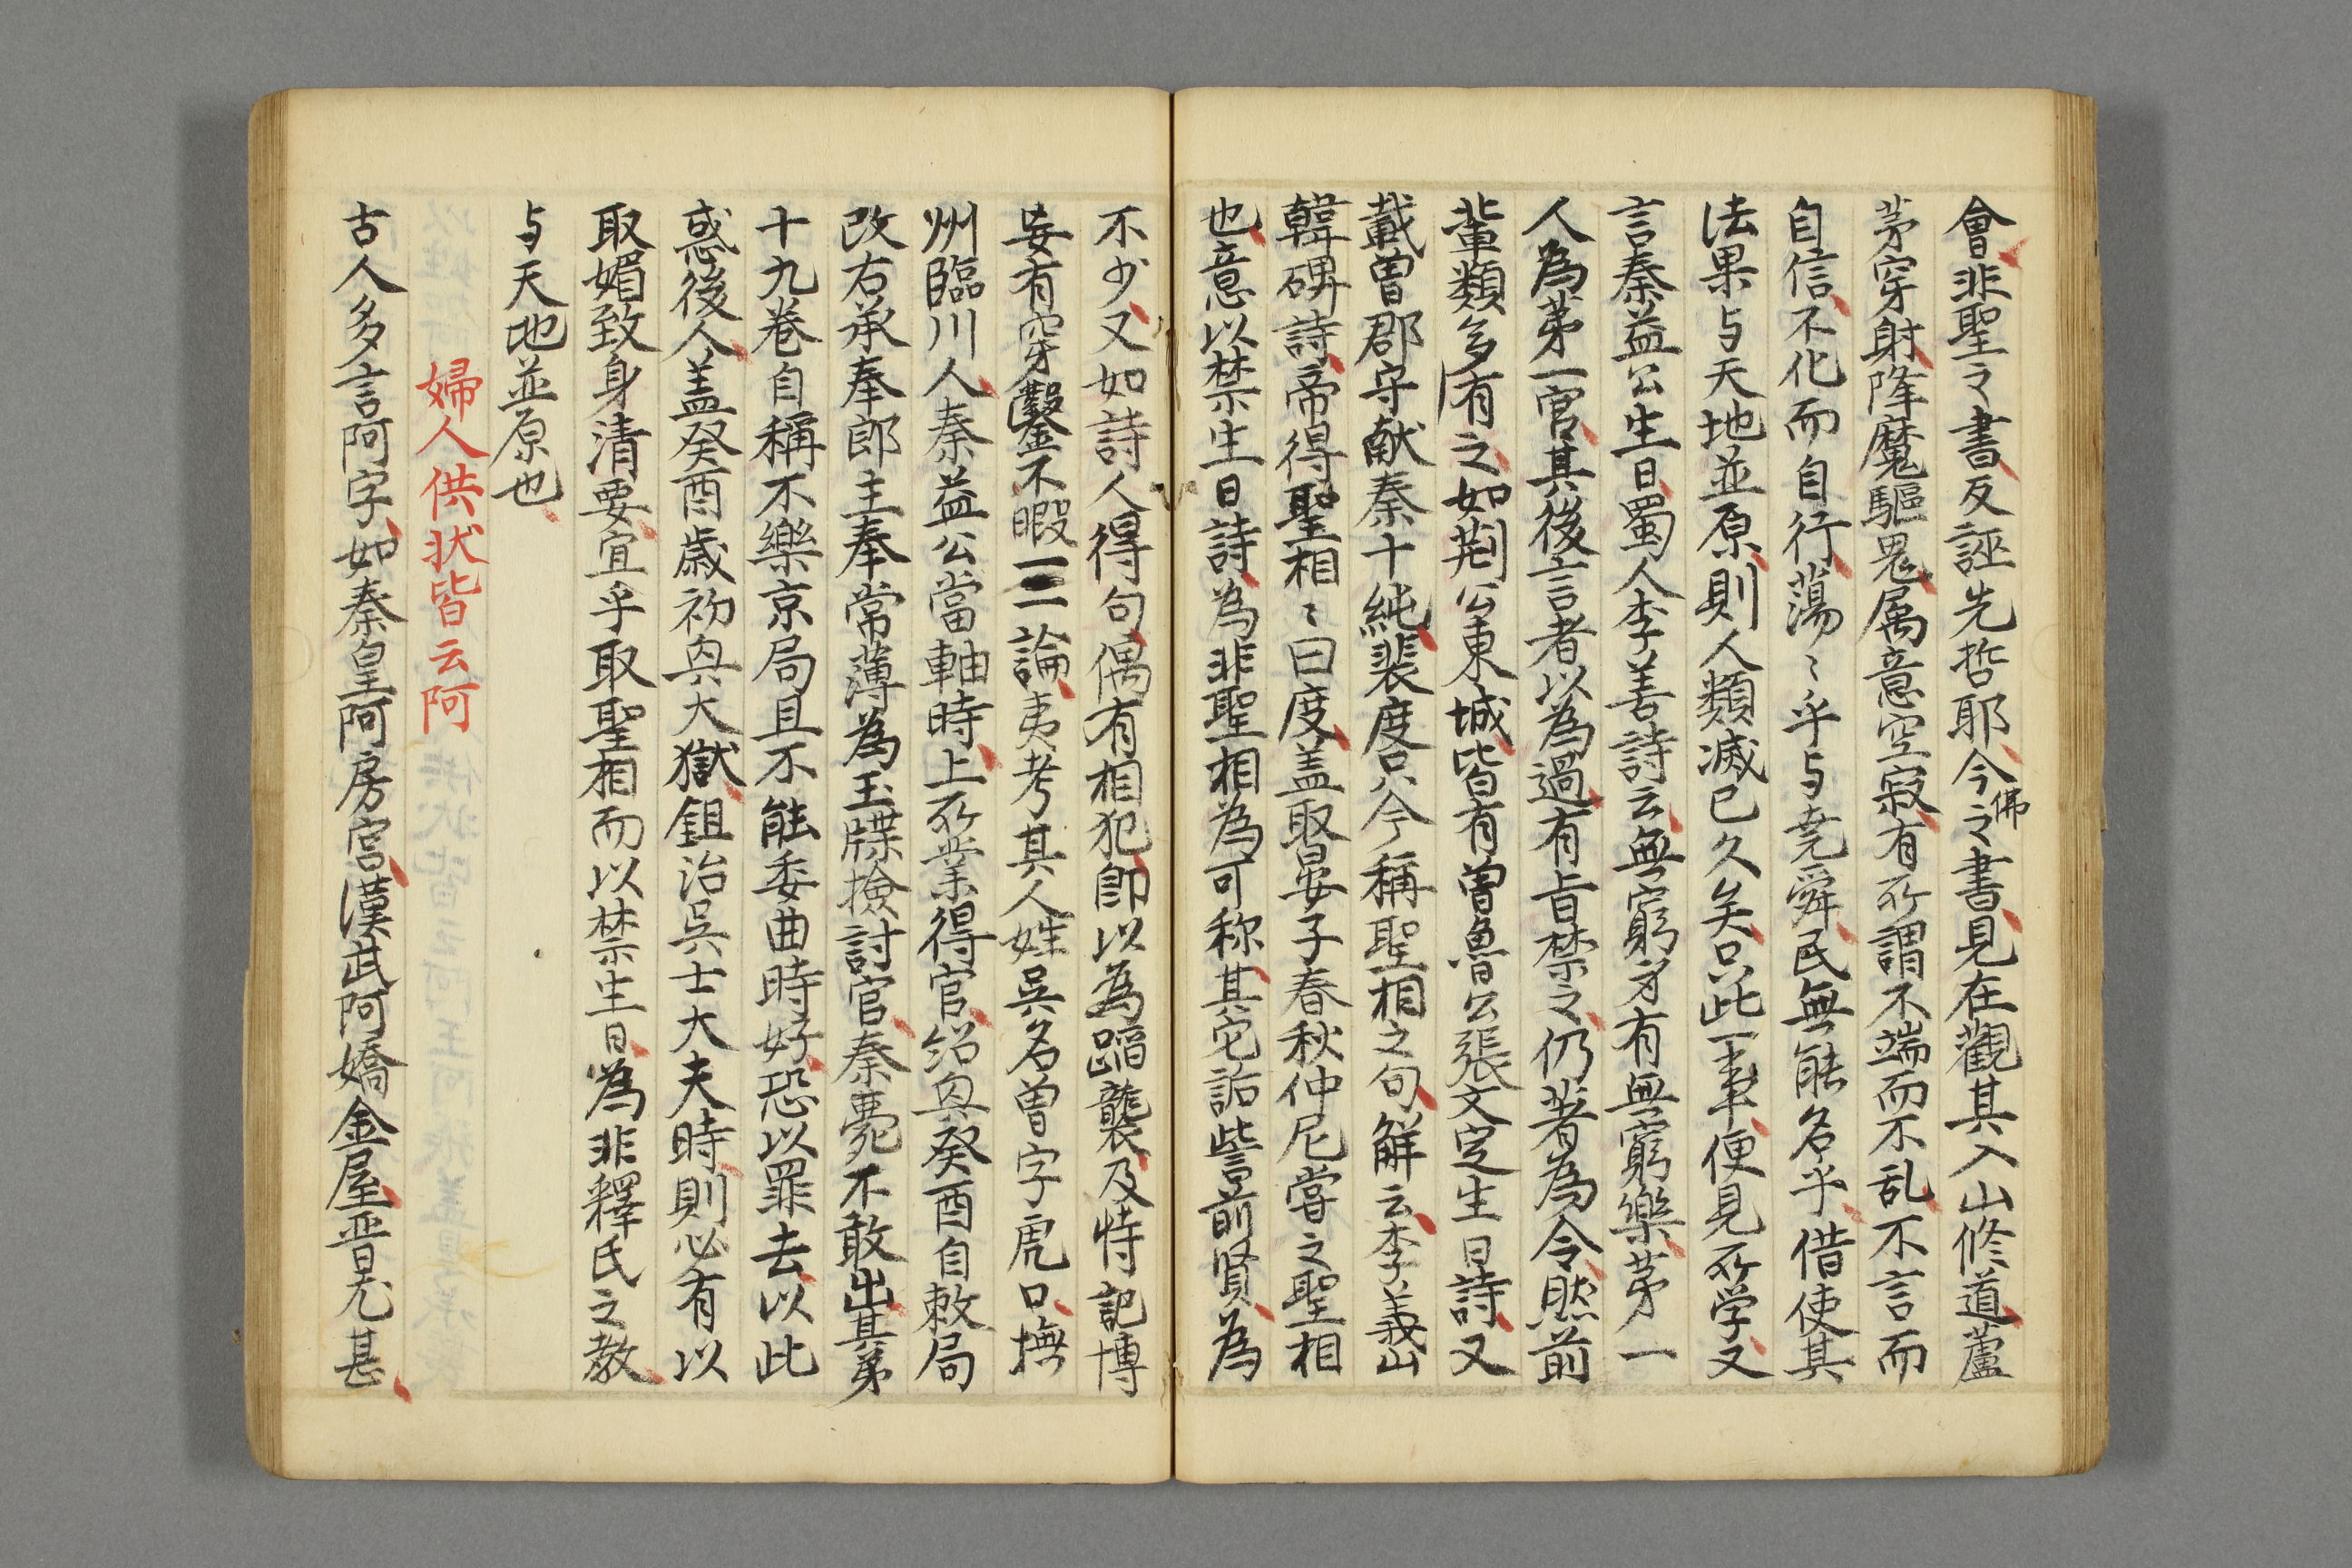 會非聖之書反誣先哲耶今之書見在觀其入山修道蘆
佛
茅穿射降魔驅鬼属意空寂有所謂不端而不乱不言而
自信不化而自行蕩〻乎与堯舜民無能名乎借使其
法果与天地並原則人類滅已久矣只此一事便見所学又
言秦益公生日蜀人李善詩云無窮才有無窮樂苐一
人為苐一官其後言者以為過有旨禁之仍著為令然前
輩類多有之如荆公東城皆有曽魯公張文定生日詩又
載曽郡守献秦十純裴度只今稱聖相之句觧云李義山
韓碑詩帝得聖相〻曰度盖取晏子春秋仲尼嘗之聖相
也意以禁生日詩為非聖相為可称其它詬訾前賢為
不少又如詩人得句偶有相犯即以為蹈襲及恃記博
妄有穿鑿不暇一二論夷考其人姓呉名曽字虎口撫
州臨川人秦益公當軸時上所業得官紹興癸酉自敕局
改右承奉郎主奉常薄為玉牒撿討官秦薨不敢出其苐
十九巻自稱不樂京局且不能委曲時好恐以罪去以此
惑後人盖癸酉歳初興大獄鉏治呉士大夫時則必有以
取媚致身清要宜乎取聖相而以禁生日為非釋氏之教
与天地並原也
婦人供状皆云阿
古人多言阿字如秦皇阿房宮漢武阿嬌金屋晋尤甚